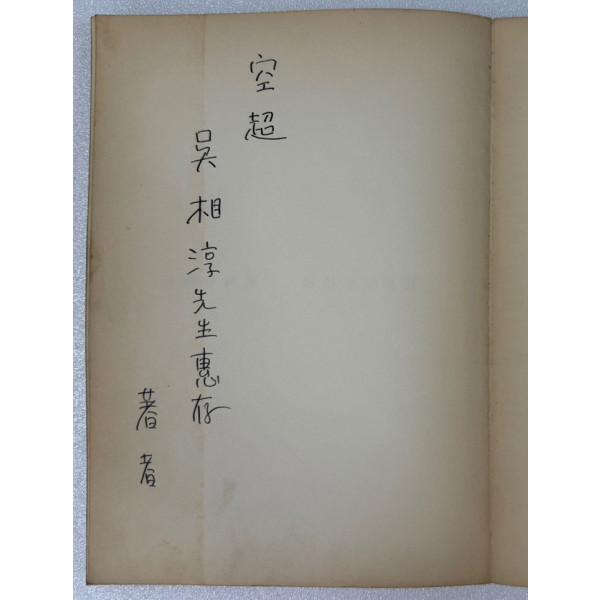 空超
吳相淳先生惠存
著者